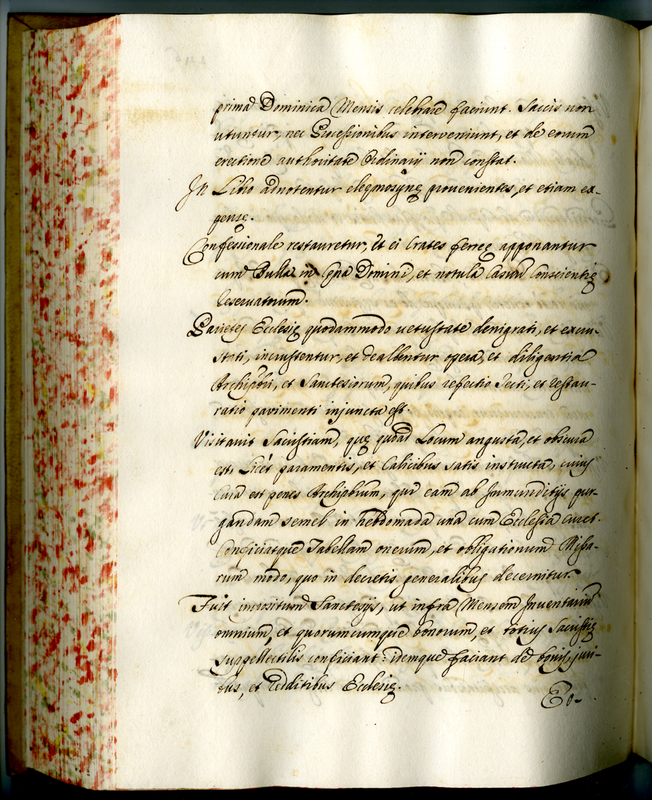 prima Dominica Mensis celebrare faciunt. Saccis non
utuntur, nec Processionibus interveniunt, et de eorum
erectione authoritate Ordinarij non constat.
In Libro adnotentur elęmosynę provenientes, et etiam ex
pensę.
Confessionale restauretur, et ei Crates ferreę apponantur
cum Bulla in Cęna Domini, et notula Casuum Conscientię
Reservatorum.
Parietes Ecclesię quodammodo vetustate denigrati, et excru-
stati, incrustentur, et dealbentur opera, et diligentia
Archipbri, et Sanctesiorum, quibus refectio Tecti, et restau-
ratio pavimenti injuncta est.
Visitavit Sacristiam, quę quoad Locum angusta, et obscura
est, Licet paramentis, et Calicibus satis instructa, cuius
Cura est penes Archipbrum, qui eam ab Immunditijs pur-
gandam semel in hebdomada una cum Ecclesia curet.
Conficiatque Tabellam onerum, et obligationum Missa-
rum modo, quo in decretis generalibus decernitur.
Fuit impositum Sanctesijs, ut infra Mensem Inventarium
omnium, et quorumcumque bonorum, et totius Sacristię
suppellectilis conficiant: idemque faciant de bonis, juri-
bus, et redditibus Ecclesię.